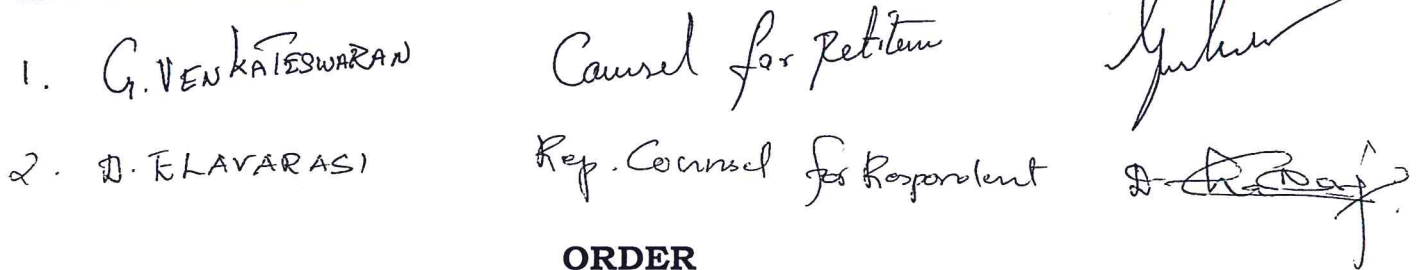 1. G. VENKATESWARAN Counsel for Petitioner
2. D. ELAVARASI Rep. Counsel for Respondent
ORDER